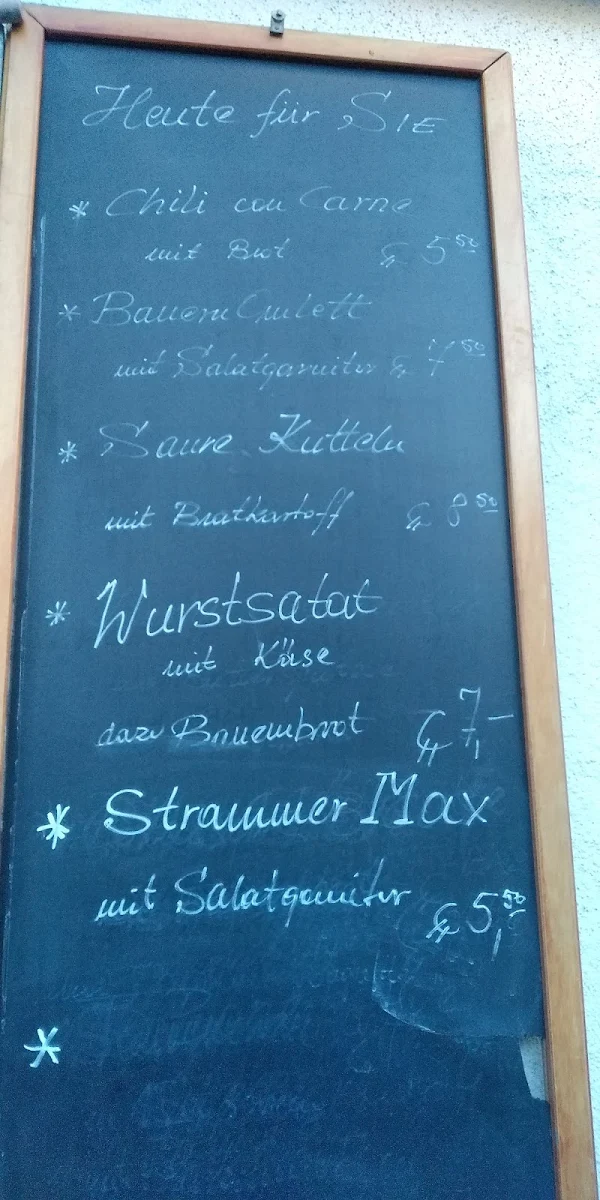 Heute für SIE
* Chili con Carne
mit Brot € 5 50
* Bauern Omlett
mit Salatgarnitur € 7 50
* Saure Kutteln
mit Bratkartoff € 8 50
* Wurstsalat
mit Käse
dazu Bauernbrot € 7,-
* Strammer Max
mit Salatgarnitur € 5,50
*